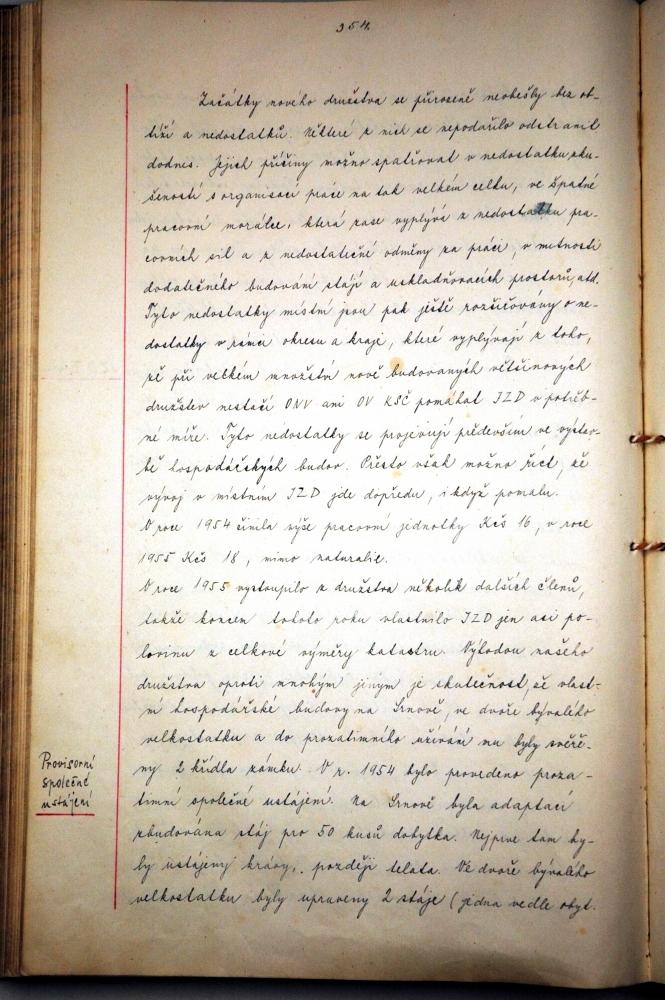 354.
Začátky nového družstva se přirozeně neobešly bez ob-
tíží a nedostatků. Některé z nich se nepodařilo odstranit
dodnes. Jejich příčiny možno spatřovat v nedostatku zku-
šeností s organisací práce na tak velkém celku, ve špatné
pracovní morálce, která zase vyplývá z nedostatku pra-
covních sil a z nedostatečné odměny za práci, v nutnosti
dodatečného budování stájí a uskladňovacích prostorů, atd.
Tyto nedostatky místní jsou pak ještě rozšiřovány o ne-
dostatky v rámci okresu a kraje, které vyplývají z toho,
že při velkém množství nově budovaných většinových
družstev nestačí ONV ani OV KSČ pomáhat JZD v potřeb-
né míře. Tyto nedostatky se projevují především ve výstav-
bě hospodářských budov. Přesto však možno říct, že
vývoj v místním JZD jde dopředu, i když pomalu.
V roce 1954 činila výše pracovní jednotky Kčs 16, v roce
1955 Kčs 18, mimo naturalie.
V roce 1955 vystoupilo z družstva několik dalších členů,
takže koncem tohoto roku vlastnilo JZD jen asi po-
lovinu z celkové výměry katastru. Výhodou našeho
družstva oproti mnohým jiným je skutečnost, že vlast-
ní hospodářské budovy na Srnově, ve dvoře bývalého
velkostatku a do prozatimního užívání mu byly svěře-
ny 2 křídla zámku. V r. 1954 bylo provedeno proza-
Provisorní
společné
ustájení
timní společné ustájení. Na Srnově byla adaptací
zbudována stáj pro 50 kusů dobytka. Nejprve tam by-
ly ustájeny krávy, později telata. Ve dvoře bývalého
velkostatku byly upraveny 2 stáje (jedna vedle obyt.